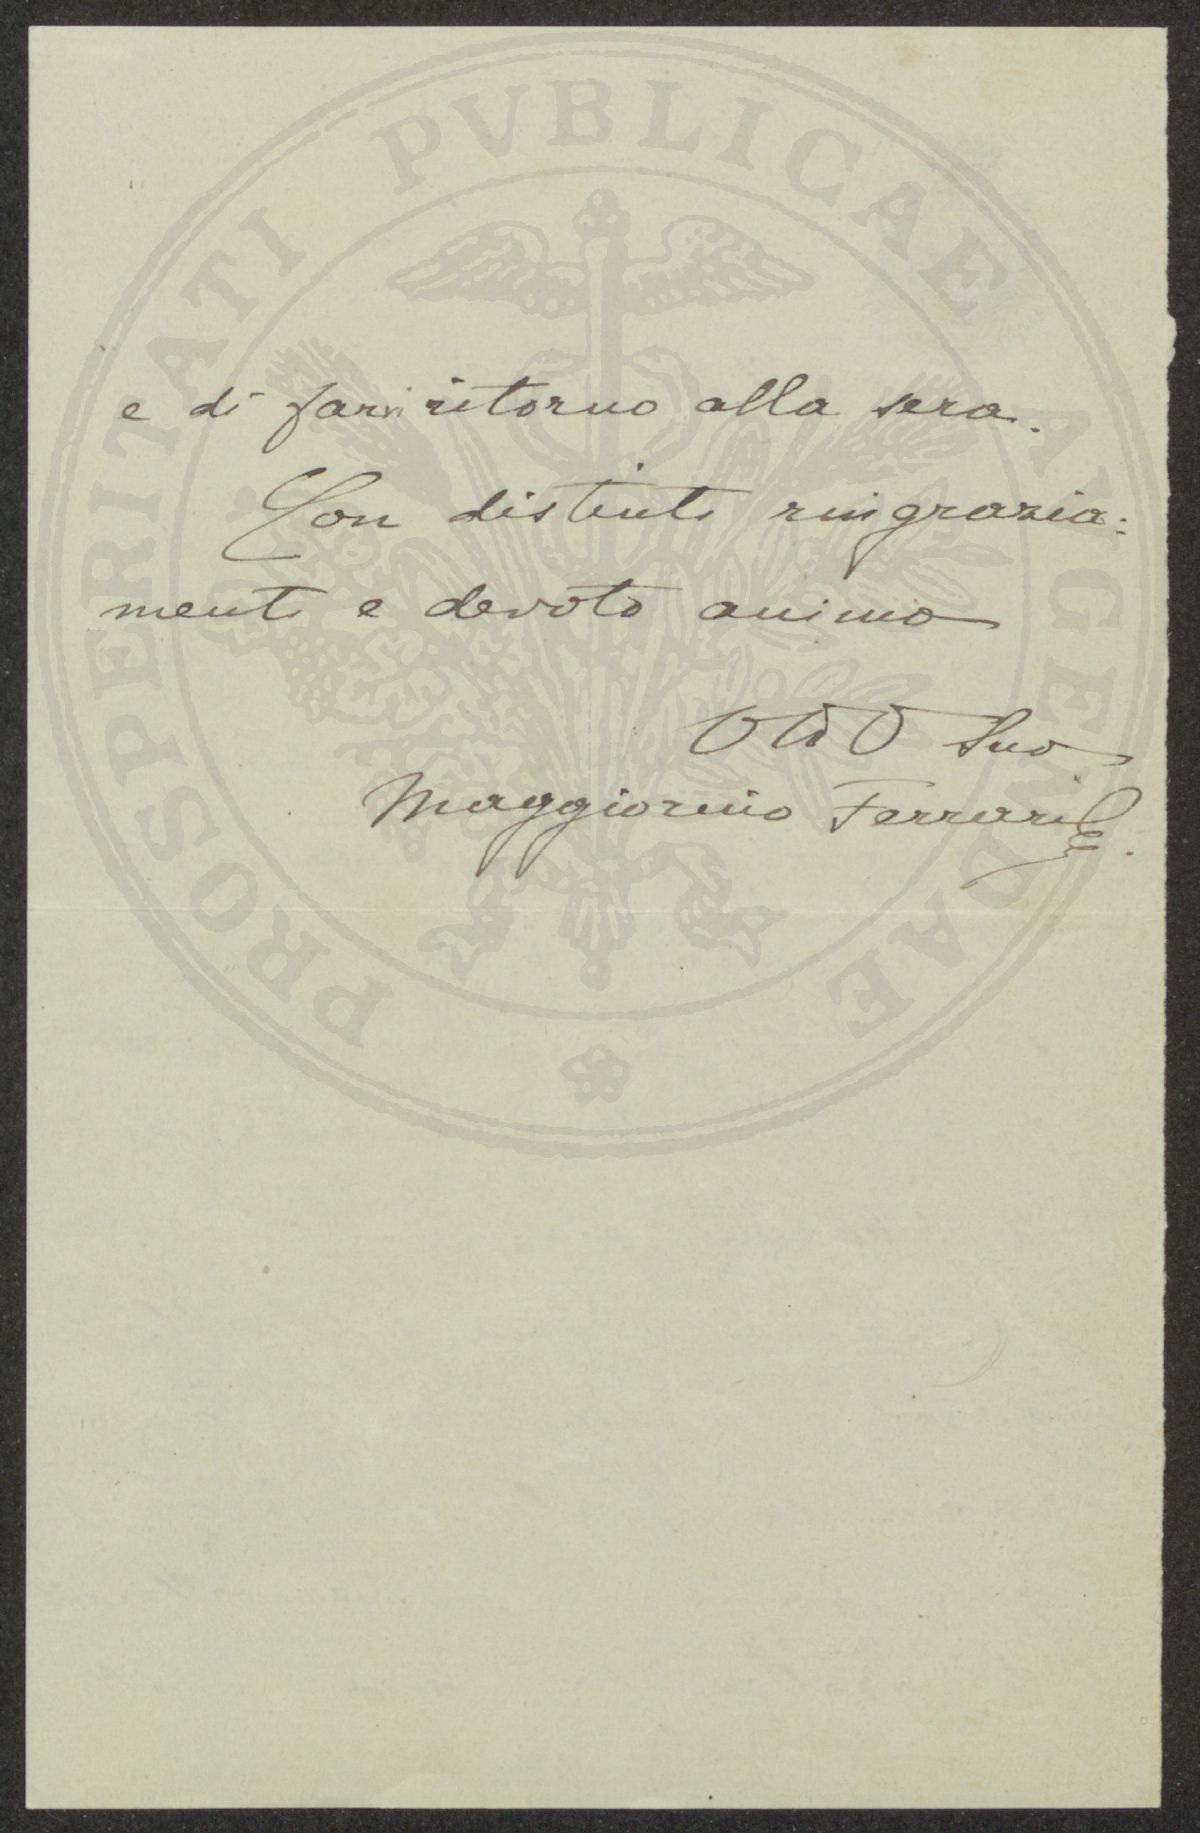 PROSPERITATI PVBLICAE AVGENDAE
e di farvi ritorno alla sera.
Con distinti ringrazia:
menti e devoto animo
Suo
Maggiorino Ferraris